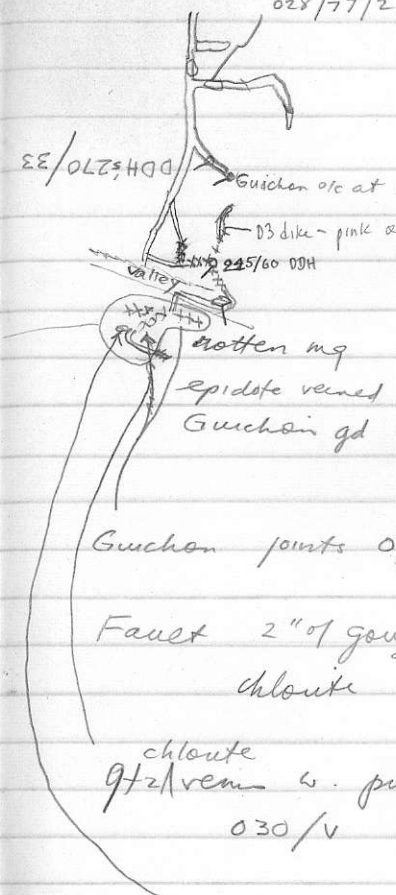 028/77/2
DDH's 270/33
Guichon o/c at
D3 dike - pink
245/60 DDH
valley
rotten mq
epidote veined
Guichon gd
Guichon joints
Fault 2" of
chlorite
chlorite
qtz veins w.
030/v